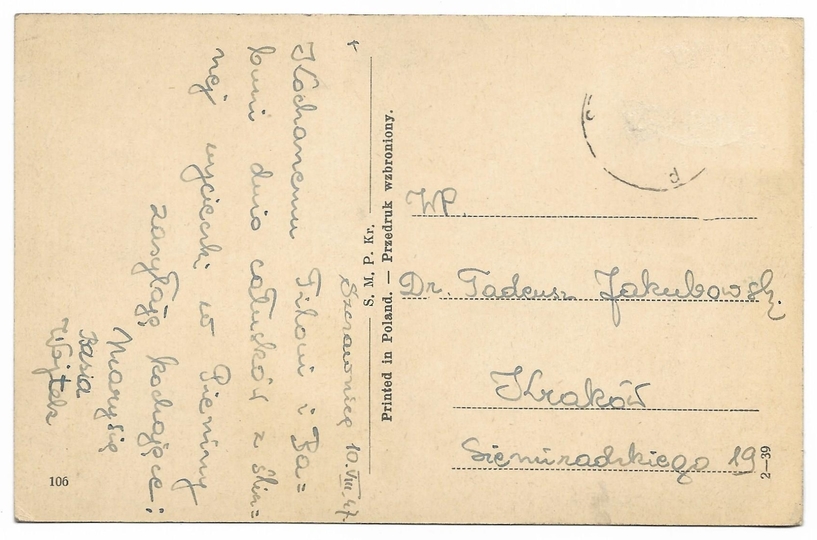 Szczawnica 10.VIII.47.
Kochanemu Filowi i Ba=
buni dużo całusków z ślicz=
nej wycieczki w Pieniny
zasyłają kochające:
Marysia
Basia
Wojtek
S. M. P. Kr.
Printed in Poland. — Przedruk wzbroniony.
WP.
Dr. Tadeusz Jakubowski
Kraków
Siemiradzkiego 19
106
2—39